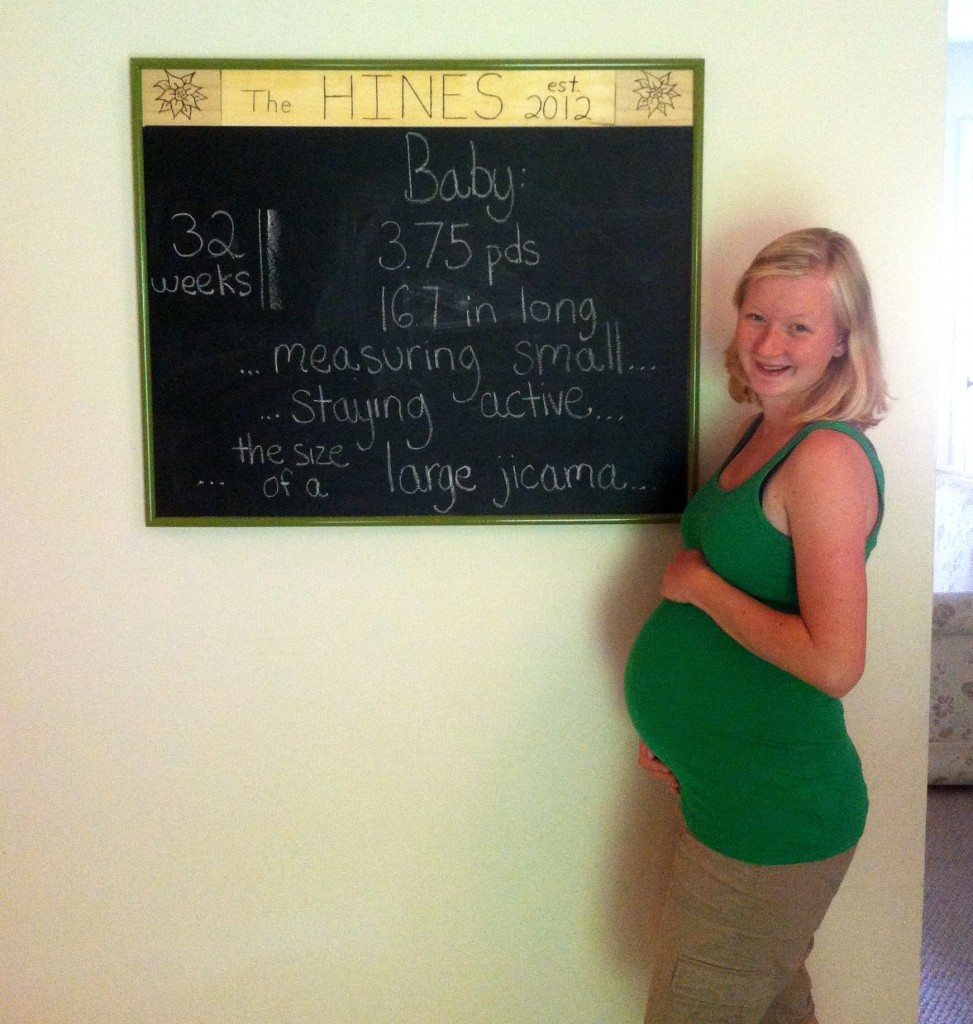 The HINES est. 2012
Baby:
32 weeks
3.75 pds
16.7 in long
... measuring small...
... staying active...
... the size of a large jicama...